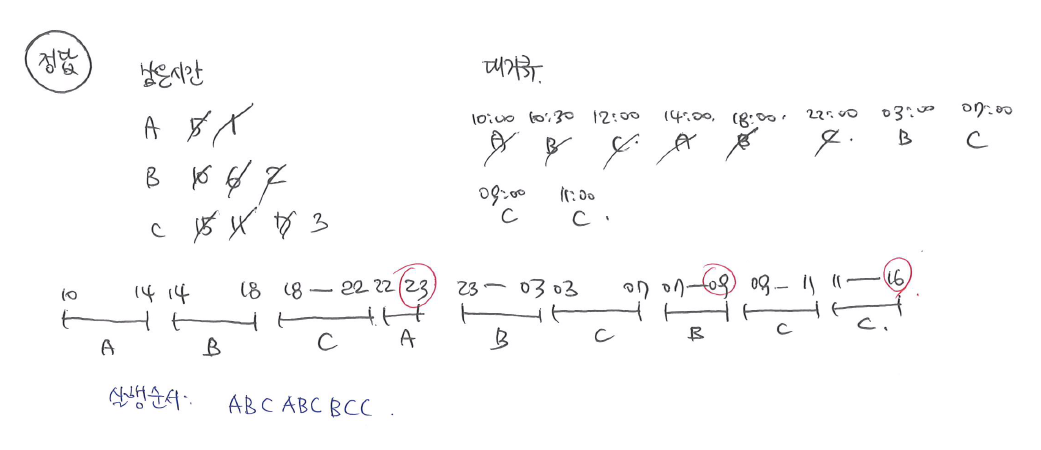 정답
남은시간
대기큐.
A 5 1
B 10 6 2
C 15 11 7 3
10:00 10:30 12:00 14:00. 18:00. 22:00 03:00 07:00
A B C. A B C. B C
09:00 11:00
C C.
10 14 14 18 18 — 22 22 23 23 — 03 03 07 07 — 09 09 — 11 11 — 16.
A B C A B C B C C.
실행순서: ABC ABC BCC.